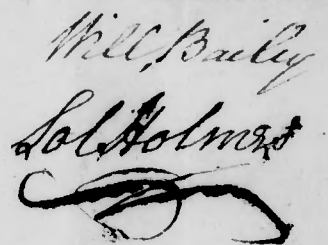 Will, Bailey
Sol Holmes